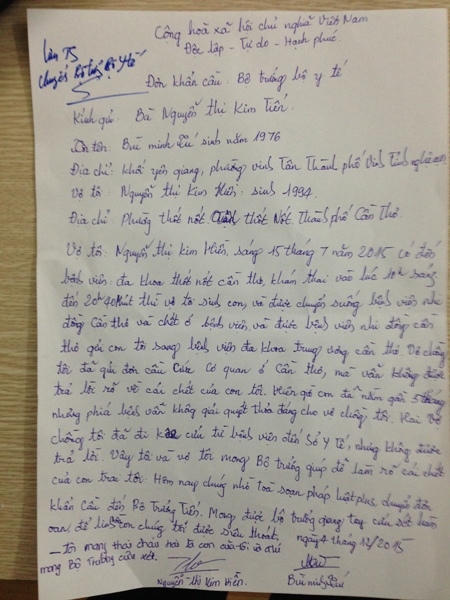 Cộng hoà xã hội chủ nghĩa Việt Nam
Độc lập - Tự do - Hạnh phúc
chuyển Bộ Y tế
Đơn khẩn cầu. Bộ trưởng bộ y tế
Kính gửi: Bà Nguyễn thị Kim Tiến.
Tôi tên: Bùi minh sinh năm 1976
Địa chỉ: Khối yên giang, phường vinh Tân Thành phố Vinh Tỉnh nghệ an
Vợ tôi: Nguyễn thị Kim Hiền: sinh 1994.
Địa chỉ Phường thốt nốt thốt Nốt Thành phố Cần Thơ.
Vợ tôi: Nguyễn thị kim Hiền, sáng 15 tháng 7 năm 2015 có đến
bệnh viện: đa khoa thốt nốt cần thơ, khám thai vào lúc 10h sáng
đến 20h 40 phút thì vợ tôi sinh con, và được chuyển xuống bệnh viện nhi
đồng Cần thơ và chết ở bệnh viện và được bệnh viện nhi đồng cần
thơ gửi con tôi sang bệnh viện đa khoa trung ương cần thơ. Vợ chồng
tôi đã gửi đơn cầu cứu cơ quan ở Cần thơ, mà vẫn không được
trả lời rõ về cái chết của con tôi. Hiện giờ con đã nằm gần 5 tháng
nhưng phía bệnh vẫn không giải quyết thỏa đáng cho vợ chồng tôi. Hai vợ
chồng tôi đã đi cứu từ bệnh viện đến Sở Y Tế, nhưng không được
trả lời. Vậy tôi và vợ tôi mong Bộ trưởng giúp để làm rõ cái chết
của con trai tôi. Hôm nay chúng nhờ toà soạn pháp luật plus chuyển đơn
khẩn Cầu đến Bộ Trưởng Tiến. Mong được bộ trưởng giang tay cứu xét
oan để linh con chúng tôi được siêu thoát, ngày 4 tháng 12/2015
- Tôi mang thai cháu là con của tôi
mong Bộ Trưởng cứu xét.
Nguyễn thị Kim Hiền.
Bùi minh